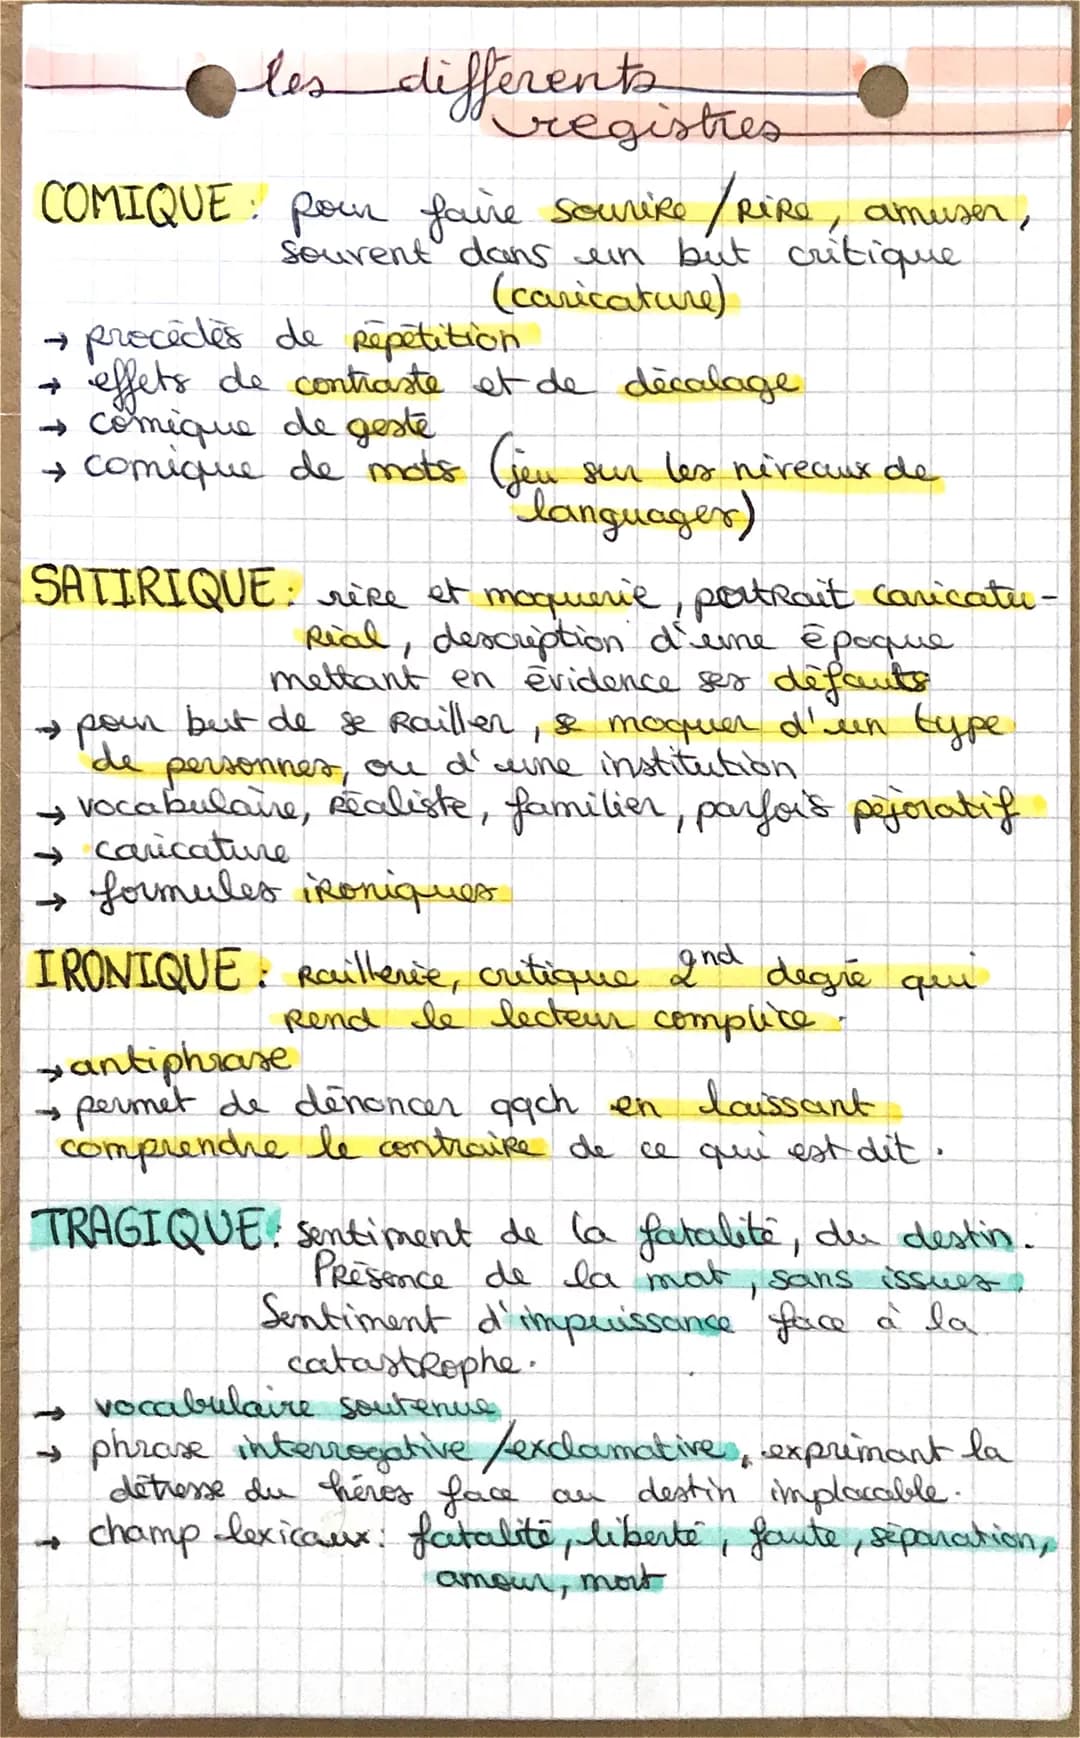 les différents
registres
COMIQUE : pour faire sourire / rire, amuser,
souvent dans un but critique
(caricature)
→ procédés de répétition
→ effets de contraste et de décalage
→ comique de geste
→ comique de mots (jeu sur les niveaux de
languages)
SATIRIQUE : rire et moquerie, portrait caricatu-
rial, description d'une époque
mettant en évidence ses défauts
→ pour but de se railler, se moquer d'un type
de personnes, ou d'une institution
→ vocabulaire, réaliste, familier, parfois péjoratif
→ caricature
→ formules ironiques
IRONIQUE : raillerie, critique 2nd degré qui
rend le lecteur complice.
→ antiphrase
→ permet de dénoncer qqch en laissant
comprendre le contraire de ce qui est dit.
TRAGIQUE : sentiment de la fatalité, du destin.
Présence de la mort, sans issues.
Sentiment d'impuissance face à la
catastrophe.
→ vocabulaire soutenue
→ phrase interrogative / exclamative, exprimant la
détresse du héros face au destin implacable.
→ champ lexicaux : fatalité, liberté, faute, séparation,
amour, mort